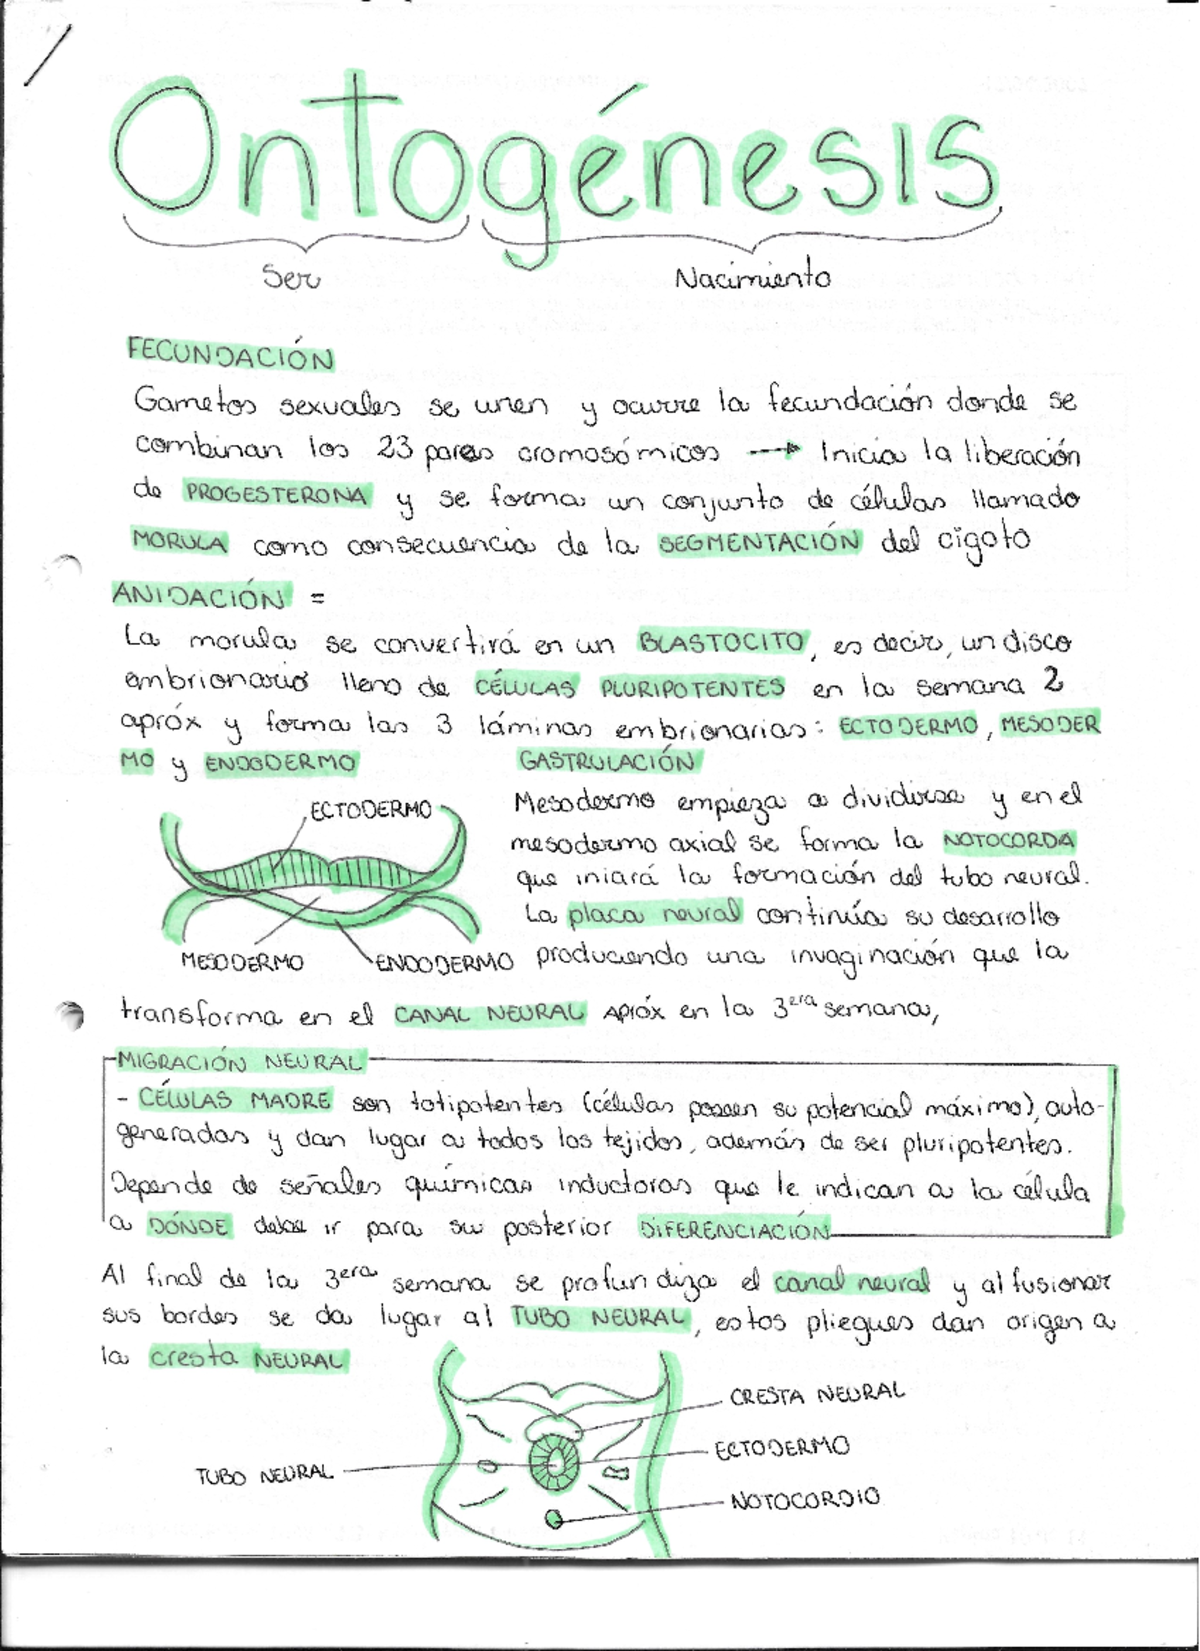 Ontogénesis
Ser Nacimiento
FECUNDACIÓN
Gametos sexuales se unen y ocurre la fecundación donde se
combinan los 23 pares cromosómicos → Inicia la liberación
de PROGESTERONA y se forma un conjunto de células llamado
MORULA como consecuencia de la SEGMENTACIÓN del cigoto
ANIDACIÓN =
La morula se convertirá en un BLASTOCITO, es decir, un disco
embrionario lleno de CÉLULAS PLURIPOTENTES en la semana 2
apróx y forma las 3 láminas embrionarias: ECTODERMO, MESODER
MO y ENDODERMO
ECTODERMO
MESODERMO
ENDODERMO
GASTRULACIÓN
Mesodermo empieza a dividirse y en el
mesodermo axial se forma la NOTOCORDA
que iniará la formación del tubo neural.
La placa neural continúa su desarrollo
produciendo una invaginación que la
transforma en el CANAL NEURAL apróx en la 3era semana,
MIGRACIÓN NEURAL
- CÉLULAS MADRE son totipotentes (células poseen su potencial máximo), auto-
generadas y dan lugar a todos los tejidos, además de ser pluripotentes.
Depende de señales químicas inductoras que le indican a la célula
a DÓNDE debe ir para su posterior DIFERENCIACIÓN
Al final de la 3era semana se profundiza el canal neural y al fusionar
sus bordes se da lugar al TUBO NEURAL, estos pliegues dan origen a
la cresta NEURAL
CRESTA NEURAL
ECTODERMO
TUBO NEURAL
NOTOCORDIO